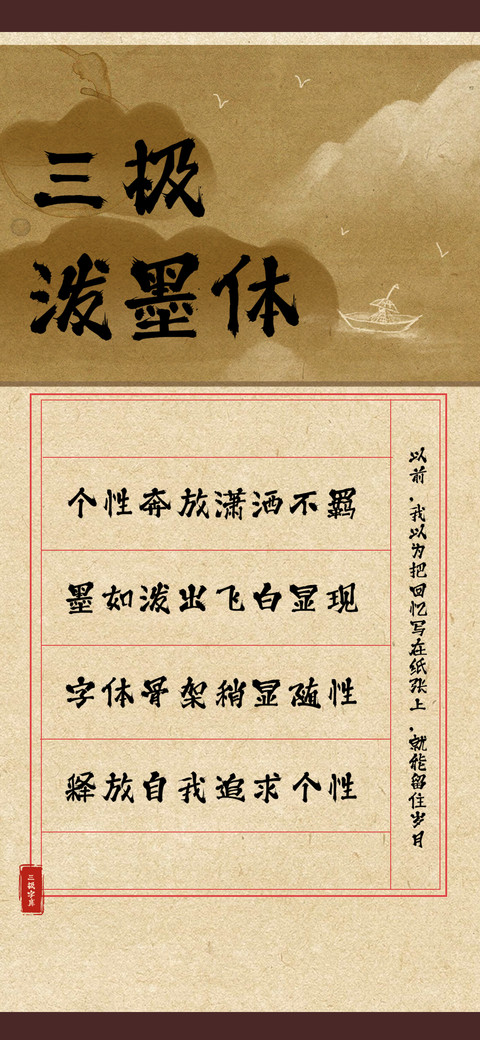 三极
泼墨体
个性奔放潇洒不羁
墨如泼出飞白显现
字体骨架稍显随性
释放自我追求个性
以前，我以为把回忆写在纸张上，就能留住岁月
三极字库